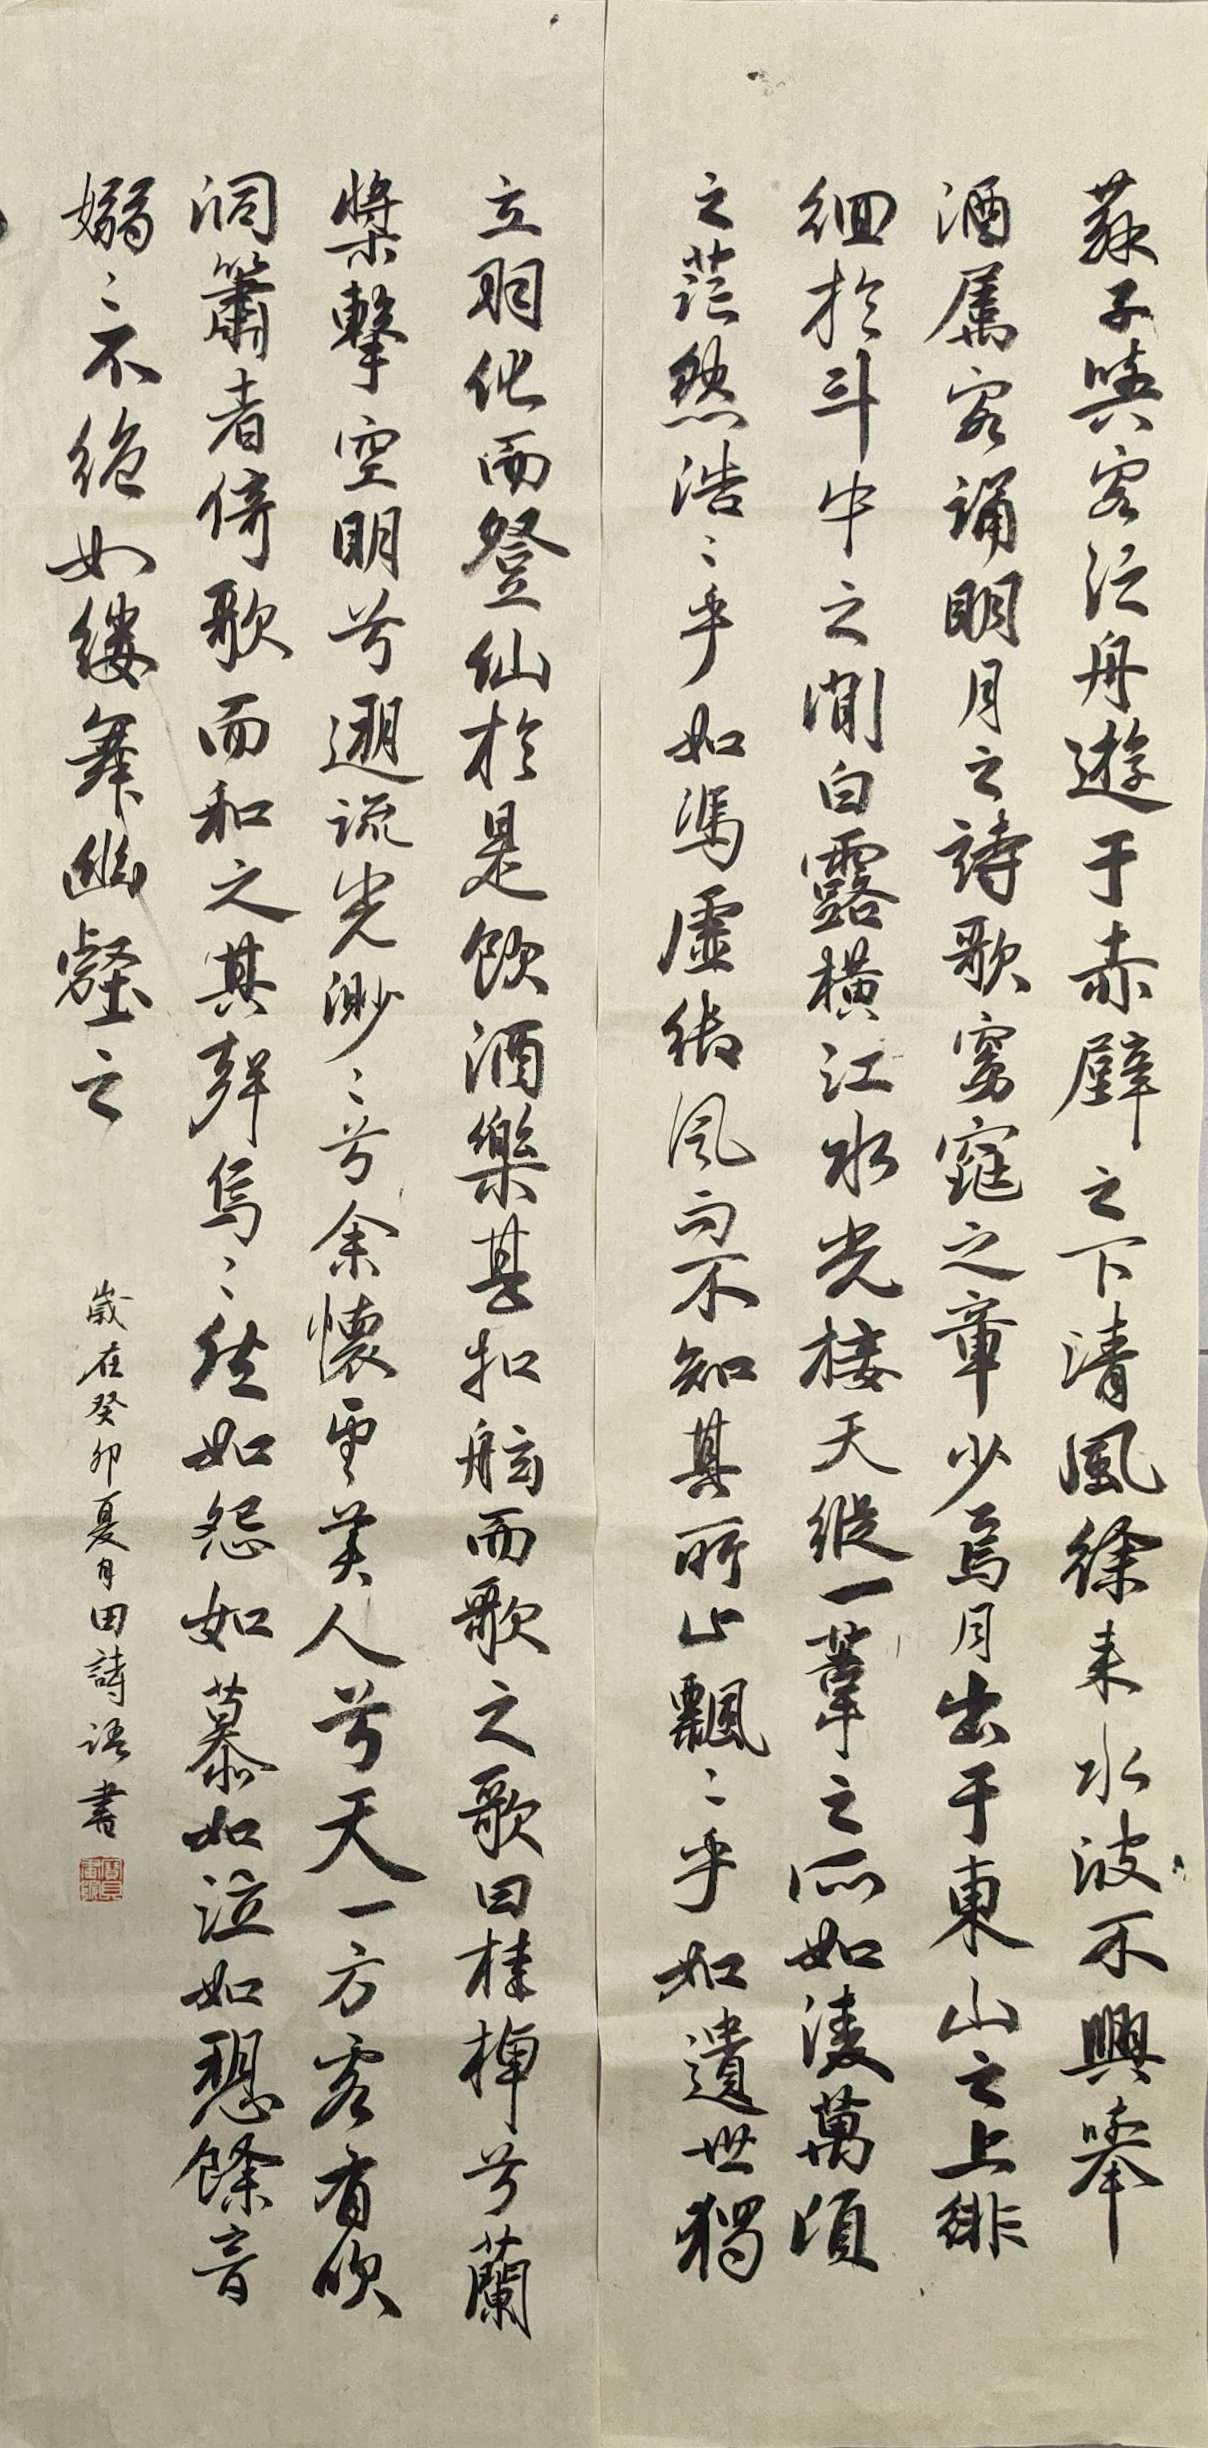 蘇子與客泛舟遊于赤壁之下清風徐来水波不興舉
酒属客誦明月之詩歌窈窕之章少焉月出于東山之上徘
徊於斗中之間白露横江水光接天縱一葦之所如淩萬頃
之茫然浩〻乎如馮虚御風而不知其所止飄〻乎如遺世獨
立羽化而登仙於是飲酒樂甚扣舷而歌之歌曰桂棹兮蘭
槳擊空明兮遡流光渺〻兮余懷望美人兮天一方客有吹
洞簫者倚歌而和之其聲焉〻然如怨如慕如泣如愬餘音
嫋〻不絶如縷舞幽壑之
歲在癸卯夏月田詩语書